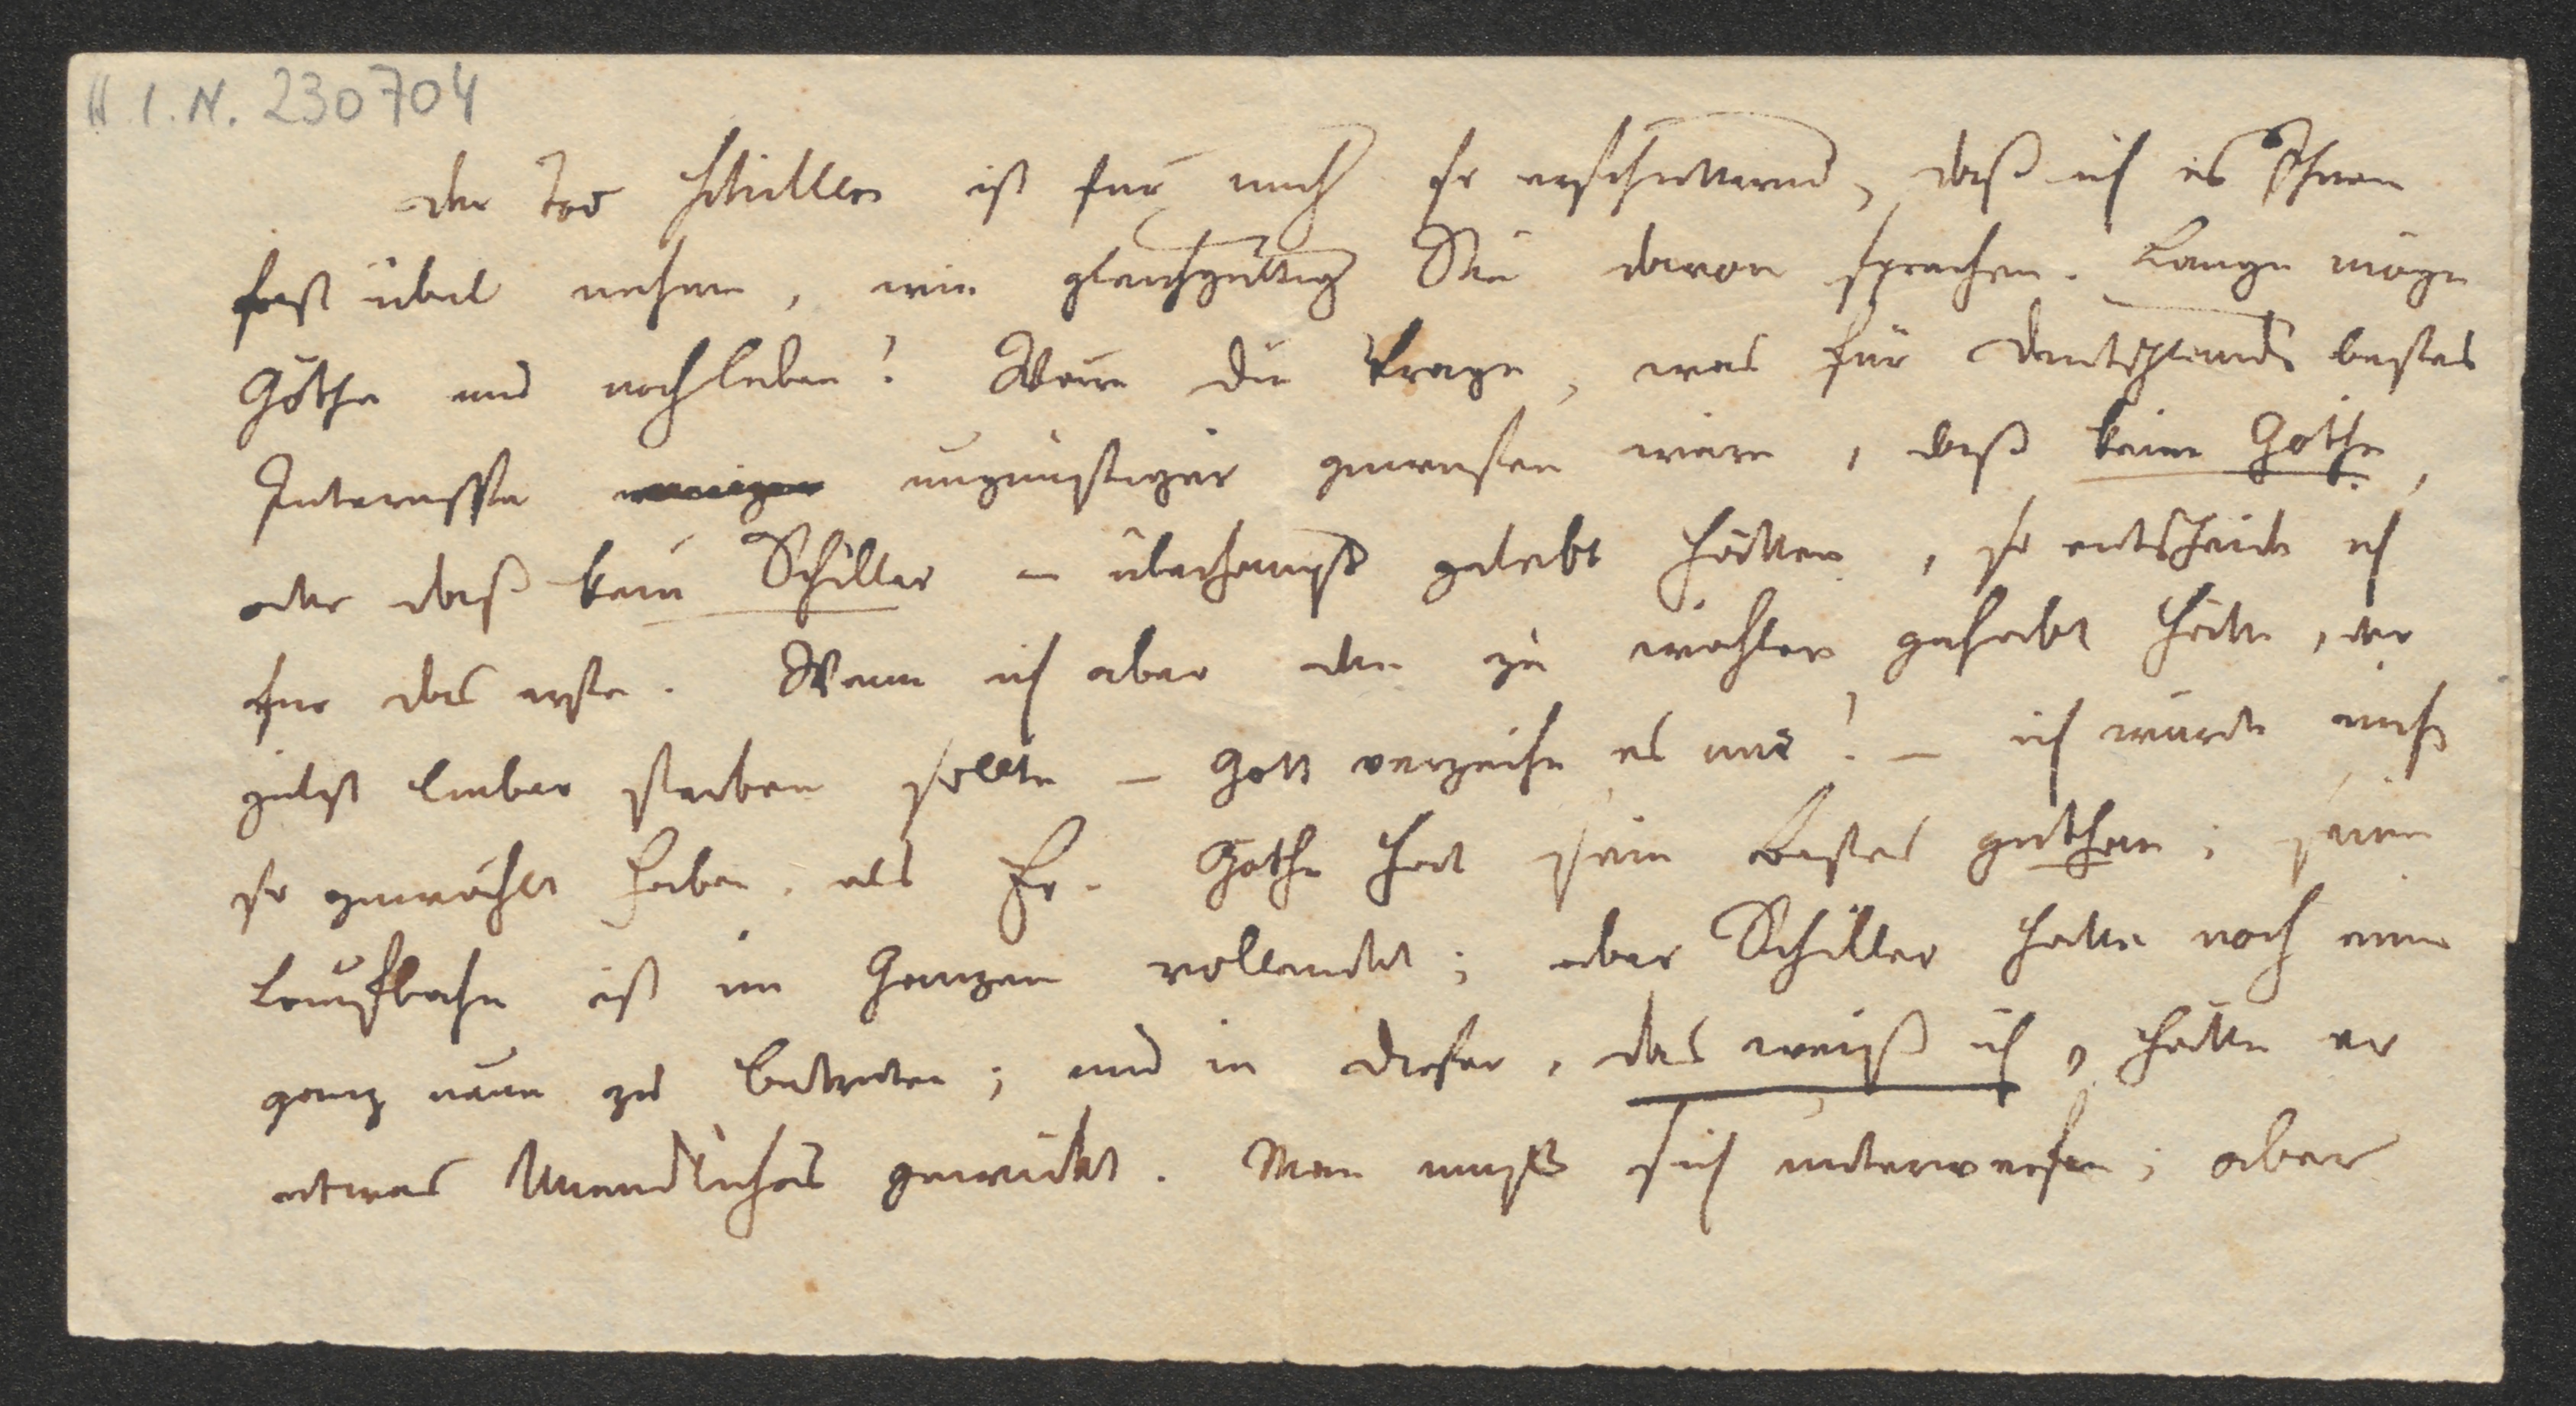 H. I. N. 230704
Der Tod Schillers ist für mich so erschütternd, daß ich es Ihnen
fast übel nehme, wie gleichgültig Sie davon sprachen. Lange möge
Göthe uns noch leben! Wäre die Frage, was für Deutschlands bestes
Interesse ungünstiger gewesen wäre, daß kein Göthe,
oder daß kein Schiller – überhaupt gelebt hätten, so entscheide ich
für das erste. Wenn ich aber den zu wählen gehabt hätte, der
lieber sterben sollte – Gott verzeihe es mir! – ich würde
so gewählt haben, als Er. Göthe hat sein Bestes gethan; seine
Laufbahn ist im Ganzen vollendet; aber Schiller hatte noch eine
ganz neue zu betreten; und in dieser, das weiß ich, hätte er
etwas Unendliches gewirkt. Man muß sich unterwerfen; aber